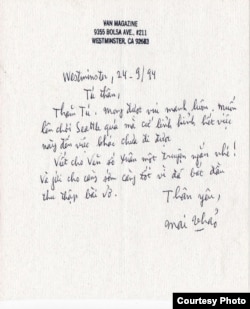 VAN MAGAZINE
9355 BOLSA AVE., #211
WESTMINSTER, CA 92683
Westminster, 24-9/94
Tú thân,
Thăm Tú. Mong được vui mạnh luôn. Muốn
lên chơi Seattle quá mà cứ linh kinh hết việc
này đến việc khác chưa đi được.
Viết cho Văn số Xuân một truyện ngắn nhé!
Và gửi cho càng sớm càng tốt vì đã bắt đầu
thu thập bài vở.
Thân yêu,
Mai Thảo
Courtesy Photo